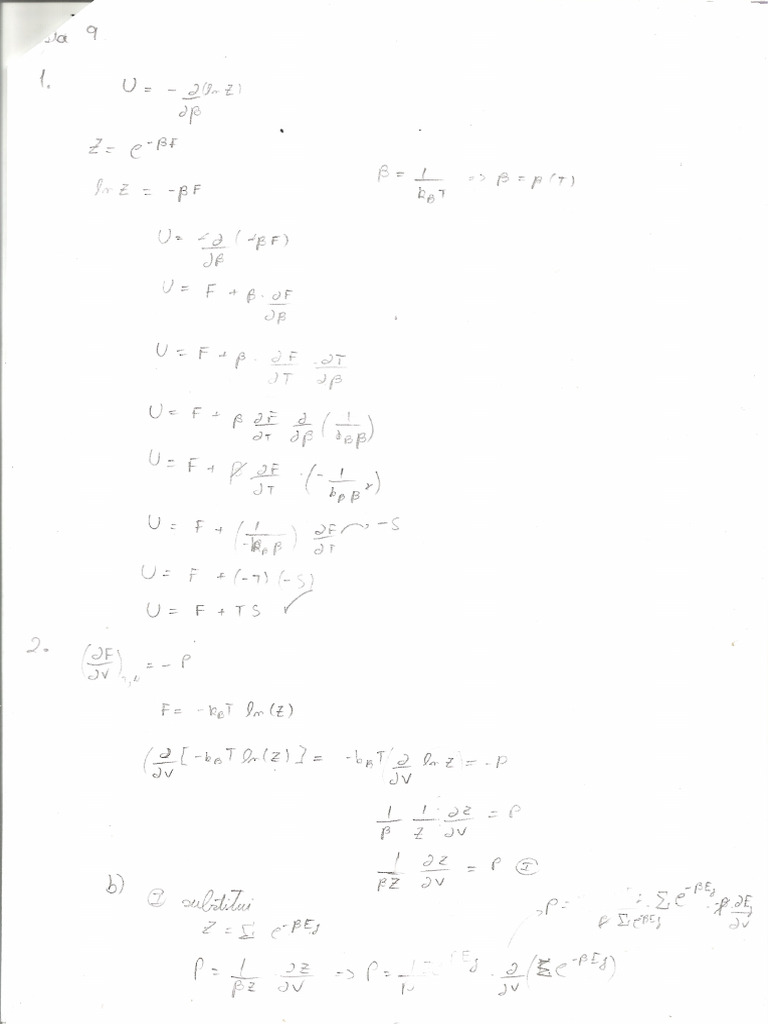 9
1. U = - ∂(ln Z)/∂β
Z = e^{-βF}
ln Z = -βF
β = 1/(k_B T) => β = β(T)
U = -∂/∂β (-βF)
U = F + β · ∂F/∂β
U = F + β · ∂F/∂T · ∂T/∂β
U = F + β ∂F/∂T ∂/∂β (1/(k_B β))
U = F + β ∂F/∂T · (-1/(k_B β²))
U = F + (1/(-k_B β)) ∂F/∂T → -S
U = F + (-T)(-S)
U = F + TS ✓
2. (∂F/∂V)_{T,N} = -P
F = -k_B T ln(Z)
(∂/∂V [-k_B T ln(Z)] = -k_B T (∂/∂V ln Z = -P
1/β 1/Z · ∂Z/∂V = P
1/(βZ) ∂Z/∂V = P Ⓘ
b) Ⓘ substitui
Z = Σ e^{-βEj}
P = 1/(βZ) · ∂Z/∂V => P = · ∂/∂V (Σ e^{-βEj})
→ P = Σ e^{-βEj} · -β ∂Ej/∂V